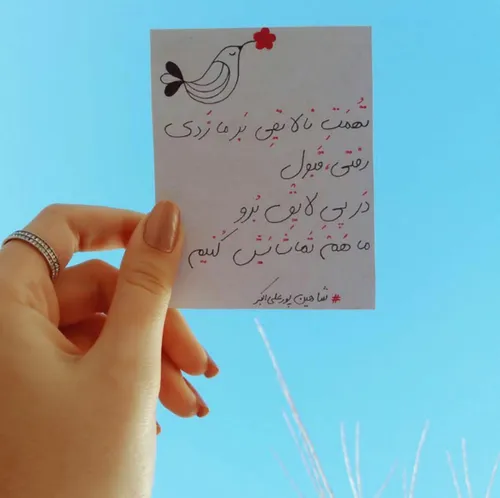 تُهمَتِ نالایقی بَر ما زَدی
رفتی، قَبول
دَر پیِ لایق بُرو
ما هَم تَماشایَش کُنیم
# شاهین پورعلی اکبر